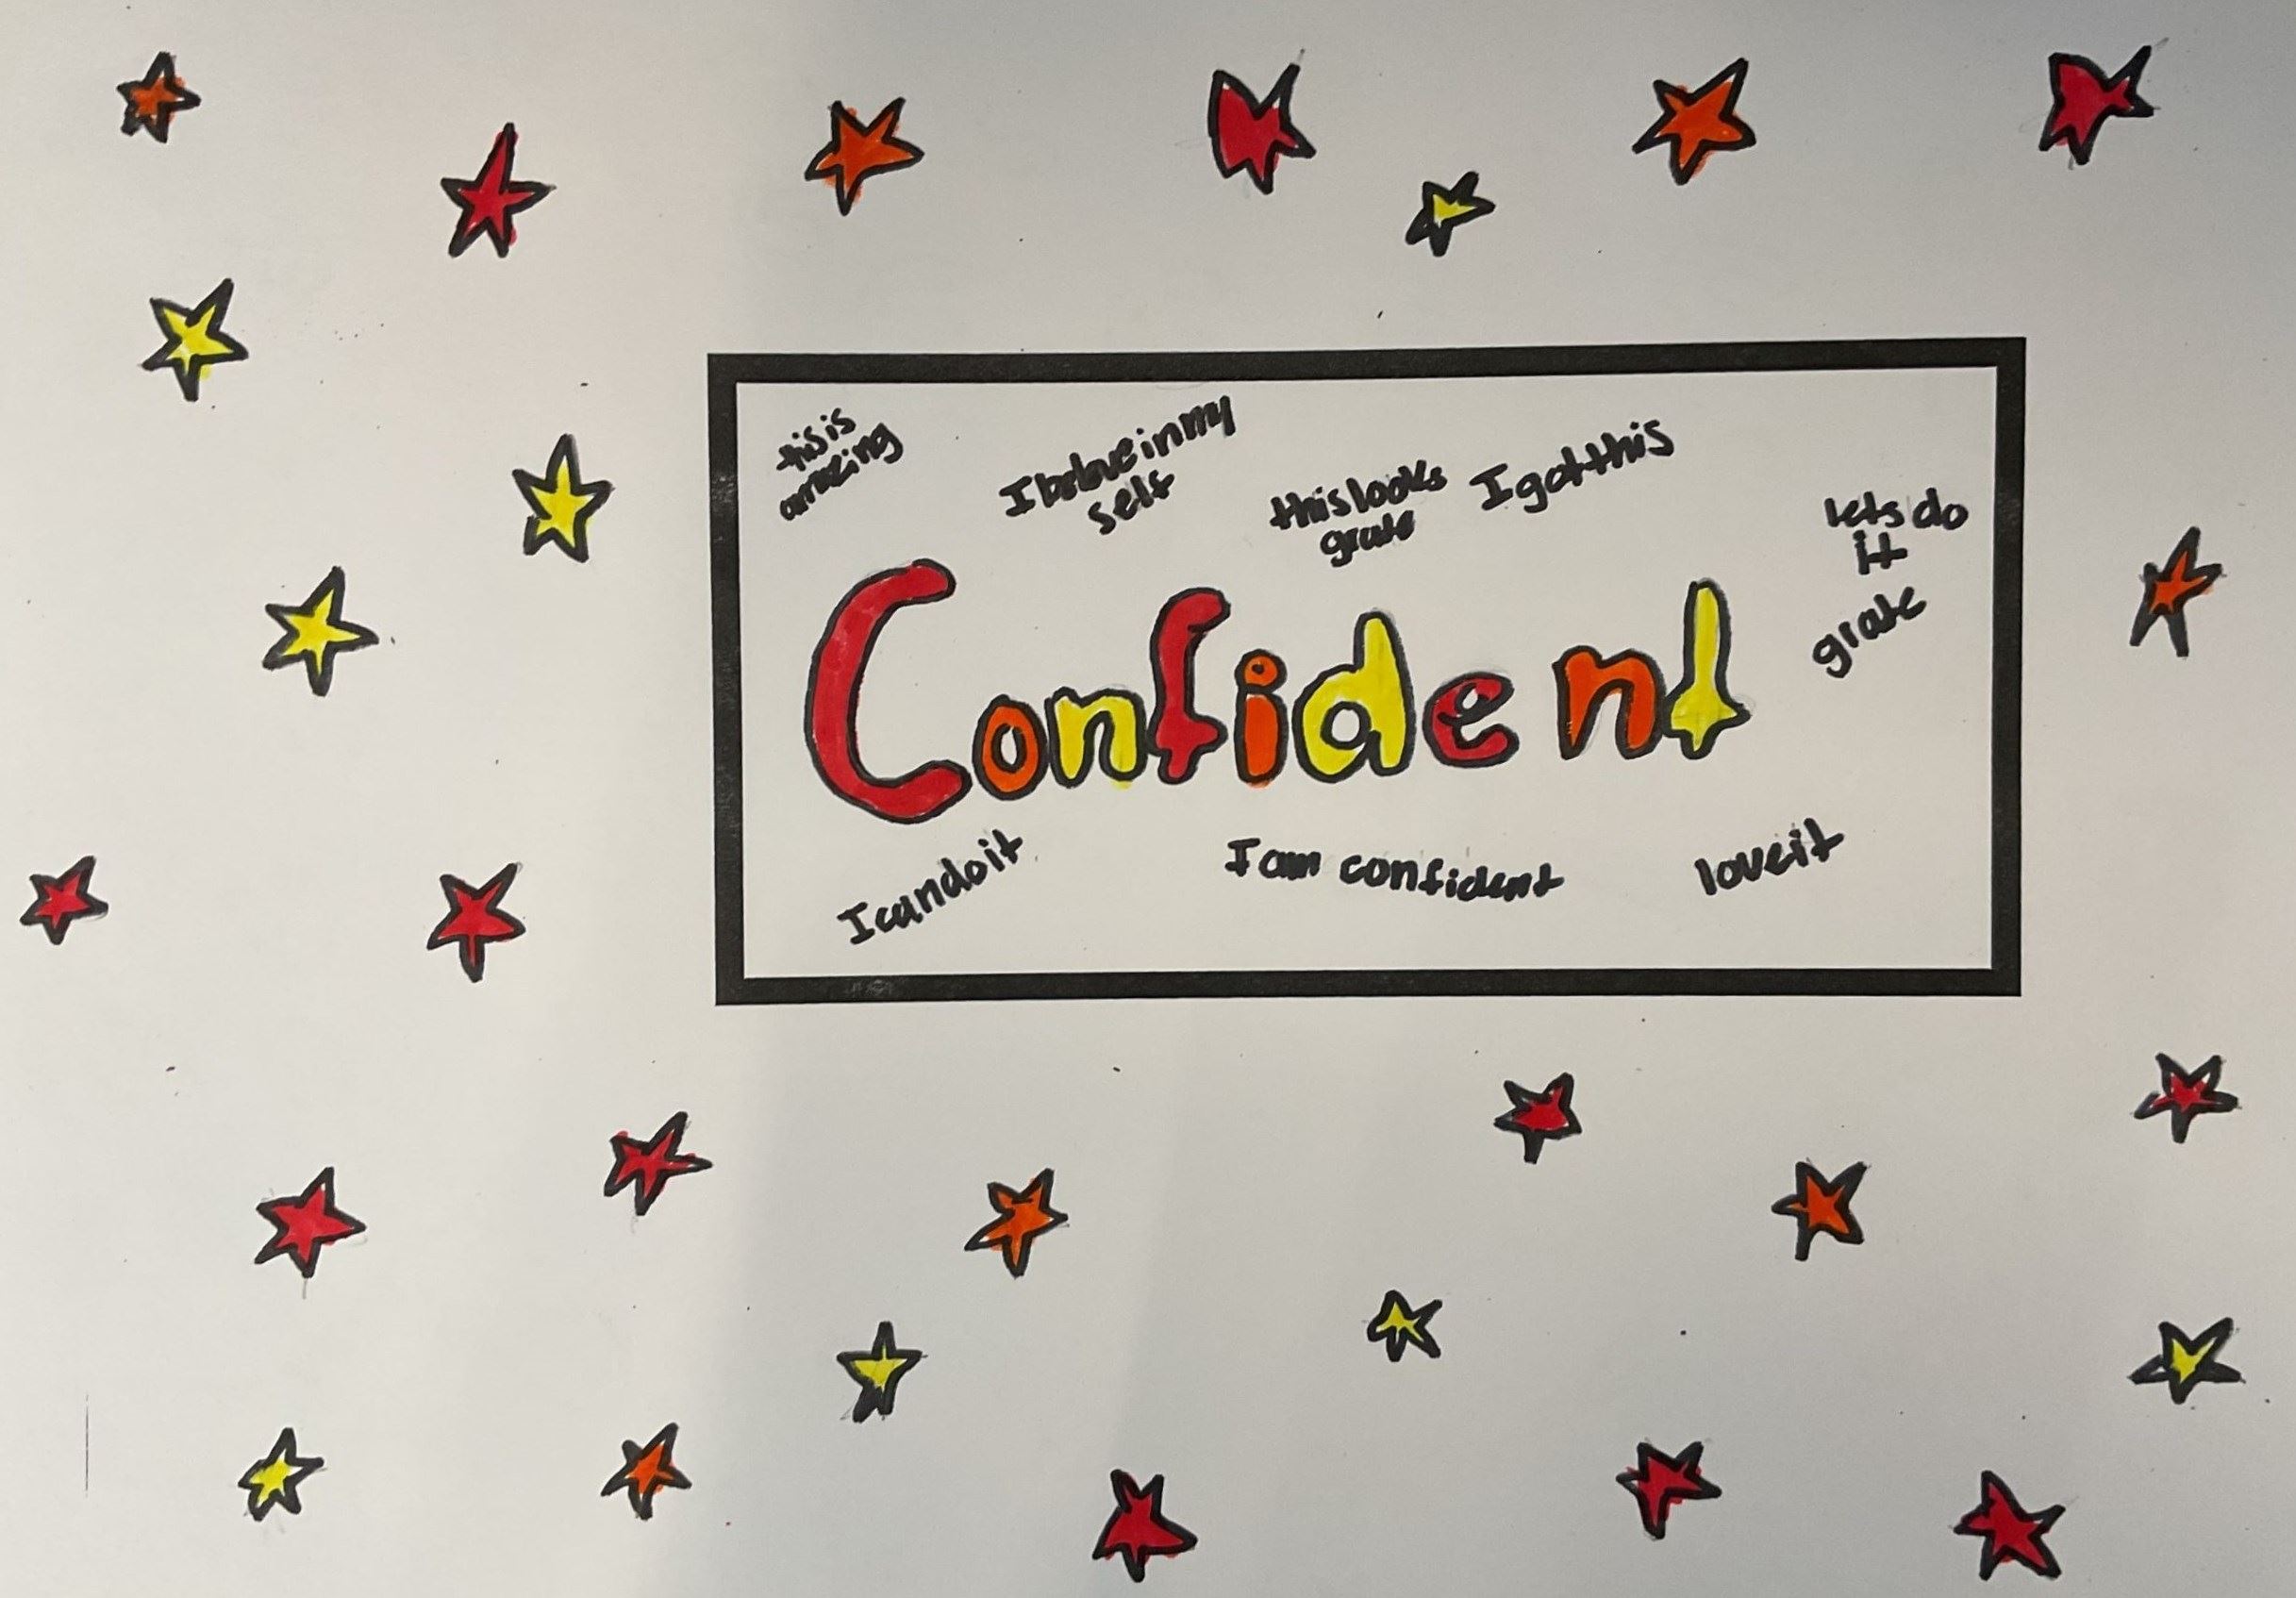 this is
amazing
I beleve in my
self
this looks
grate
I got this
lets do
it
grate
Confident
I can do it
I am confident
love it